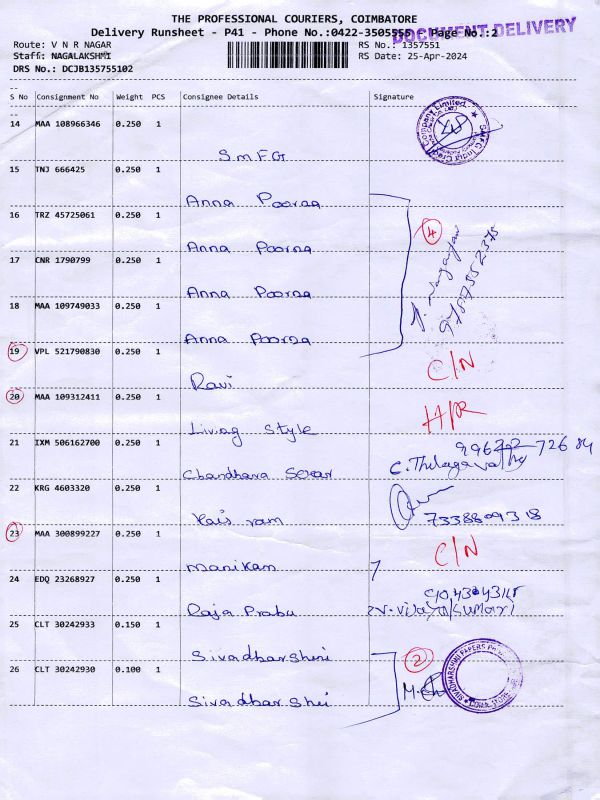 THE PROFESSIONAL COURIERS, COIMBATORE
Delivery Runsheet - P41 - Phone No.:0422-3505555 - Page No.:2
DOCUMENT DELIVERY
Route: V N R NAGAR
RS No.: 1357551
Staff: NAGALAKSHMI
RS Date: 25-Apr-2024
DRS No.: DCJB135755102
S No Consignment No Weight PCS Consignee Details Signature
14 MAA 108966346 0.250 1
SMFG
15 TNJ 666425 0.250 1
Anna Poorna
16 TRZ 45725061 0.250 1
4
Anna Poorna
17 CNR 1790799 0.250 1
9787552375
Anna Poorna
18 MAA 109749033 0.250 1
Anna Poorna
19 VPL 521790830 0.250 1
C/N
Ravi
20 MAA 109312411 0.250 1
H/R
Living Style
21 IXM 506162700 0.250 1
Chandhara Sekar C. Thilagavathy
22 KRG 4603320 0.250 1
ram 7338809318
23 MAA 300899227 0.250 1
C/N
Manikam
24 EDQ 23268927 0.250 1
Raja Prabu
25 CLT 30242933 0.150 1
Sivadharshini
2
26 CLT 30242930 0.100 1
SIVADHARSHINI PAPERS